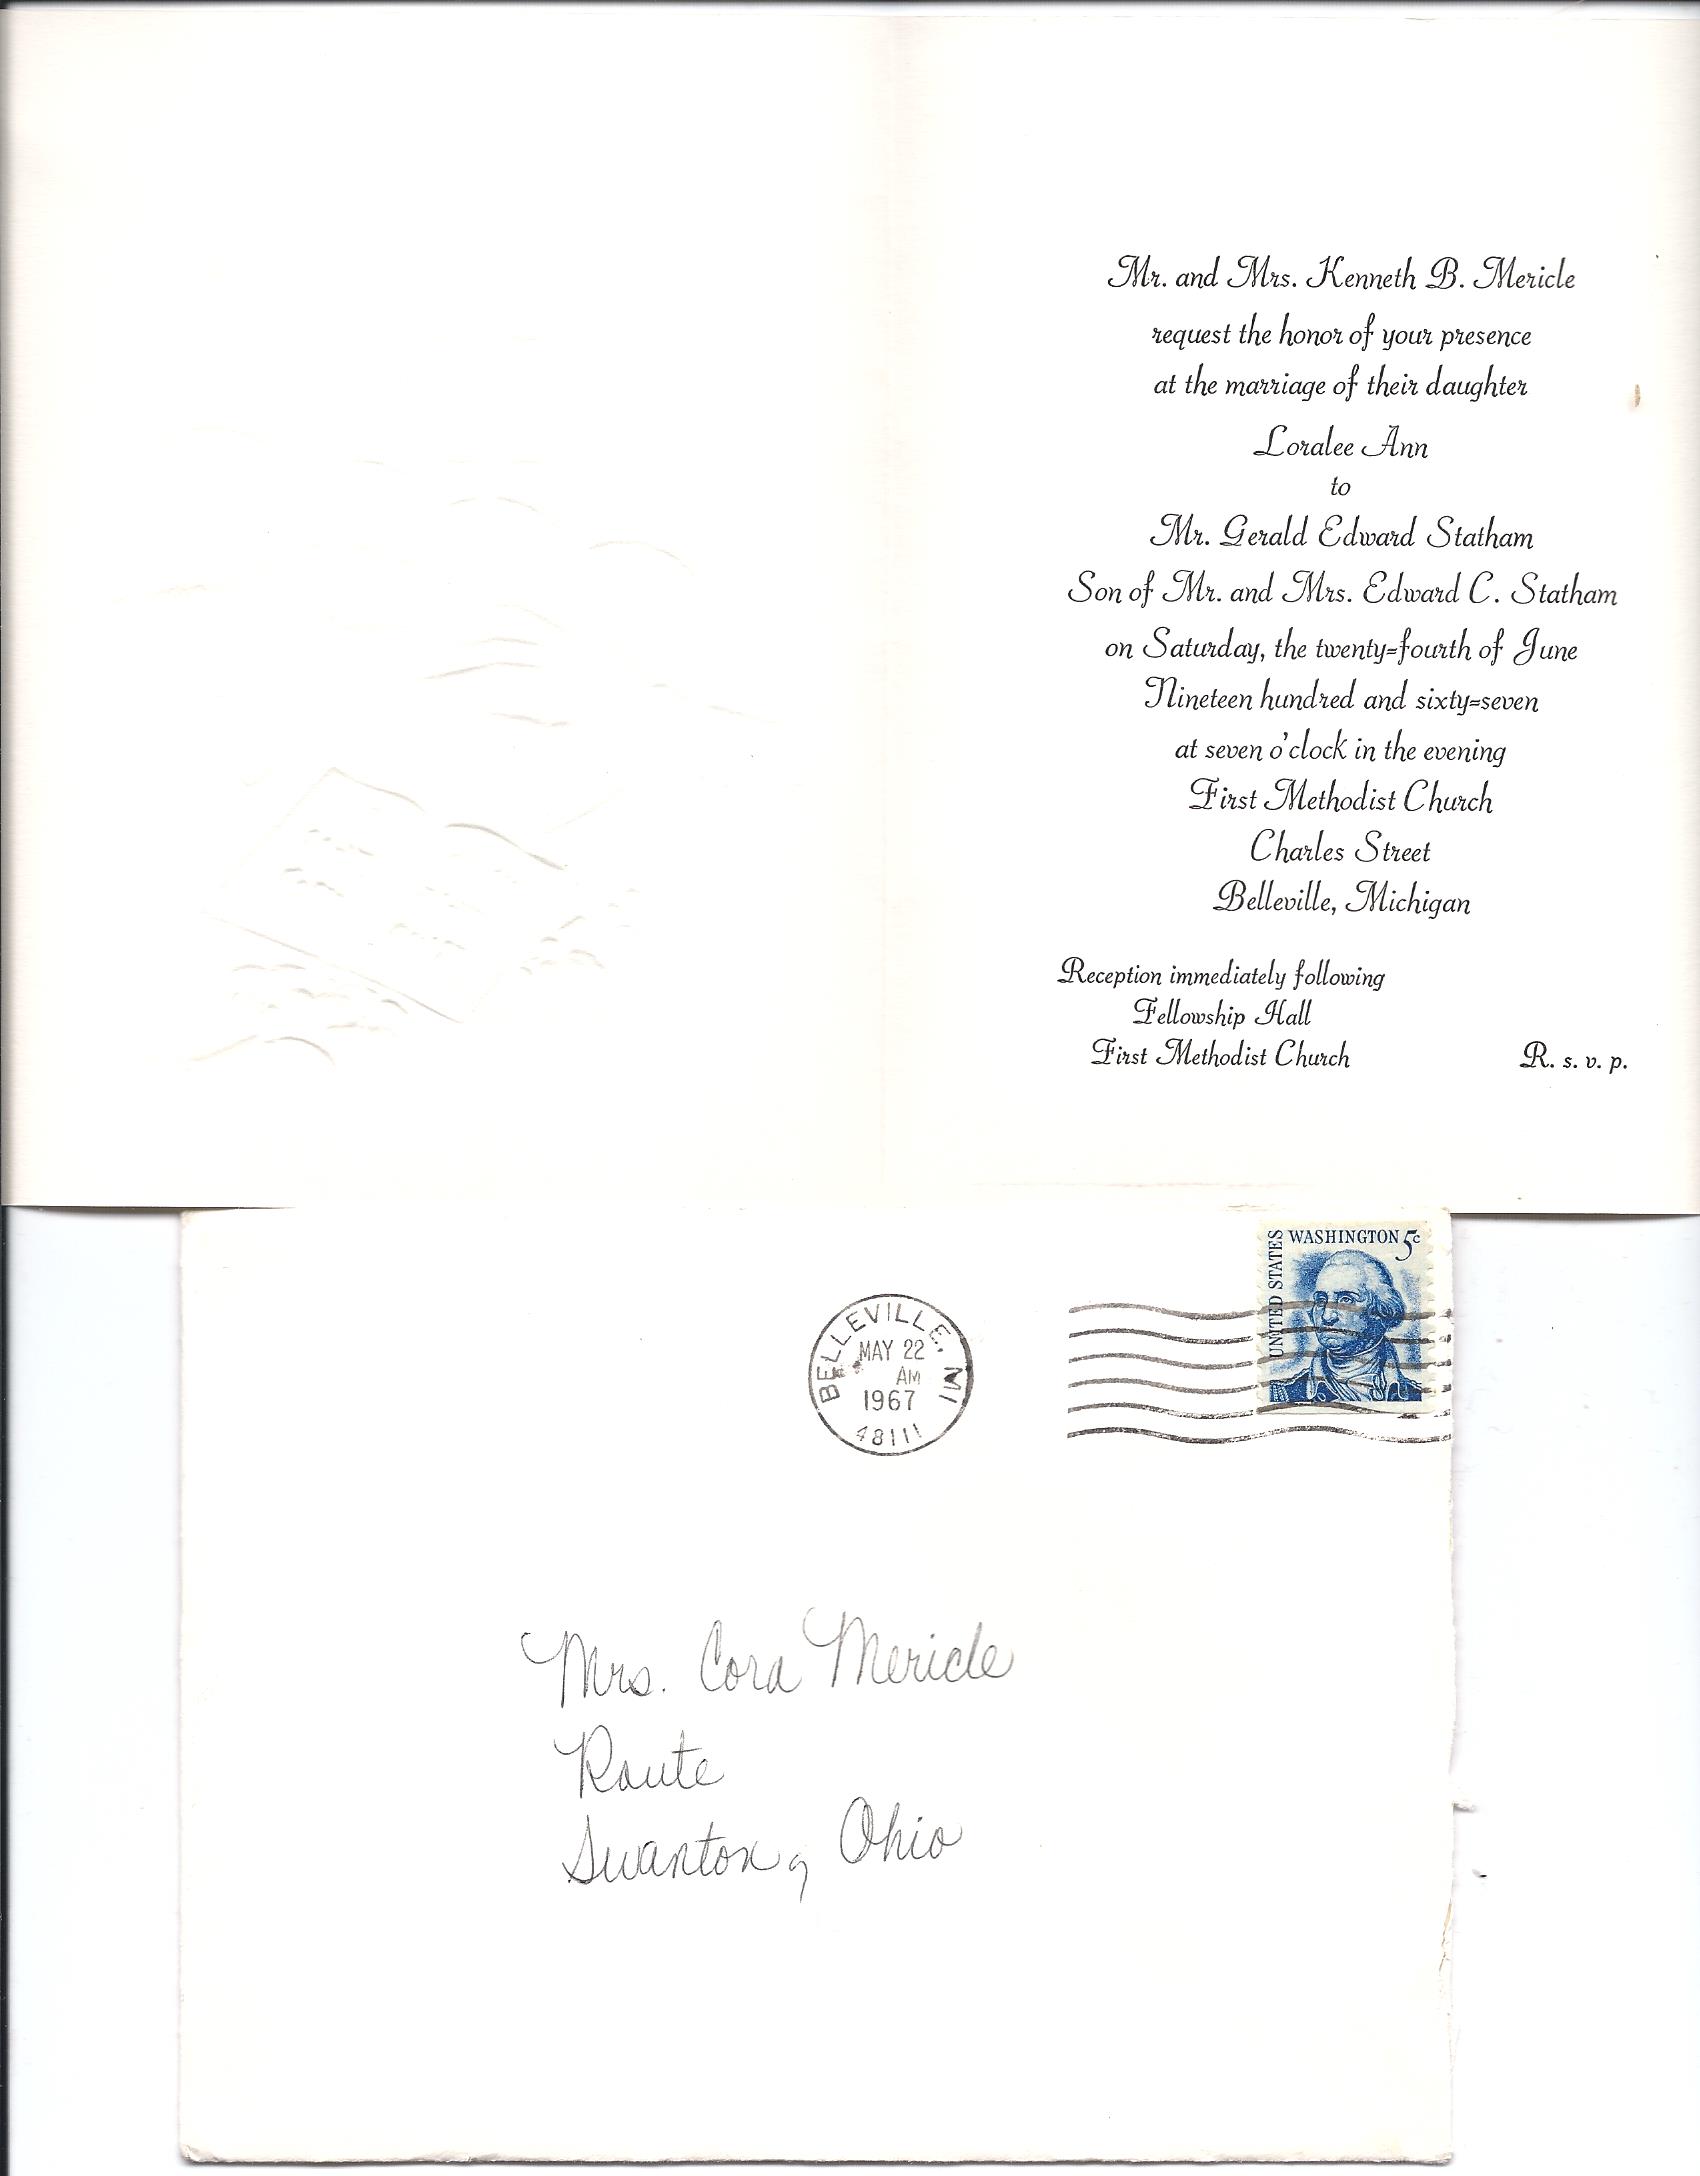 Mr. and Mrs. Kenneth B. Mericle
request the honor of your presence
at the marriage of their daughter
Loralee Ann
to
Mr. Gerald Edward Statham
Son of Mr. and Mrs. Edward C. Statham
on Saturday, the twenty=fourth of June
Nineteen hundred and sixty=seven
at seven o'clock in the evening
First Methodist Church
Charles Street
Belleville, Michigan
Reception immediately following
Fellowship Hall
First Methodist Church
R. s. v. p.
UNITED STATES
WASHINGTON 5c
BELLEVILLE, MI
MAY 22
AM
1967
48111
Mrs. Cora Mericle
Route
Swanton, Ohio